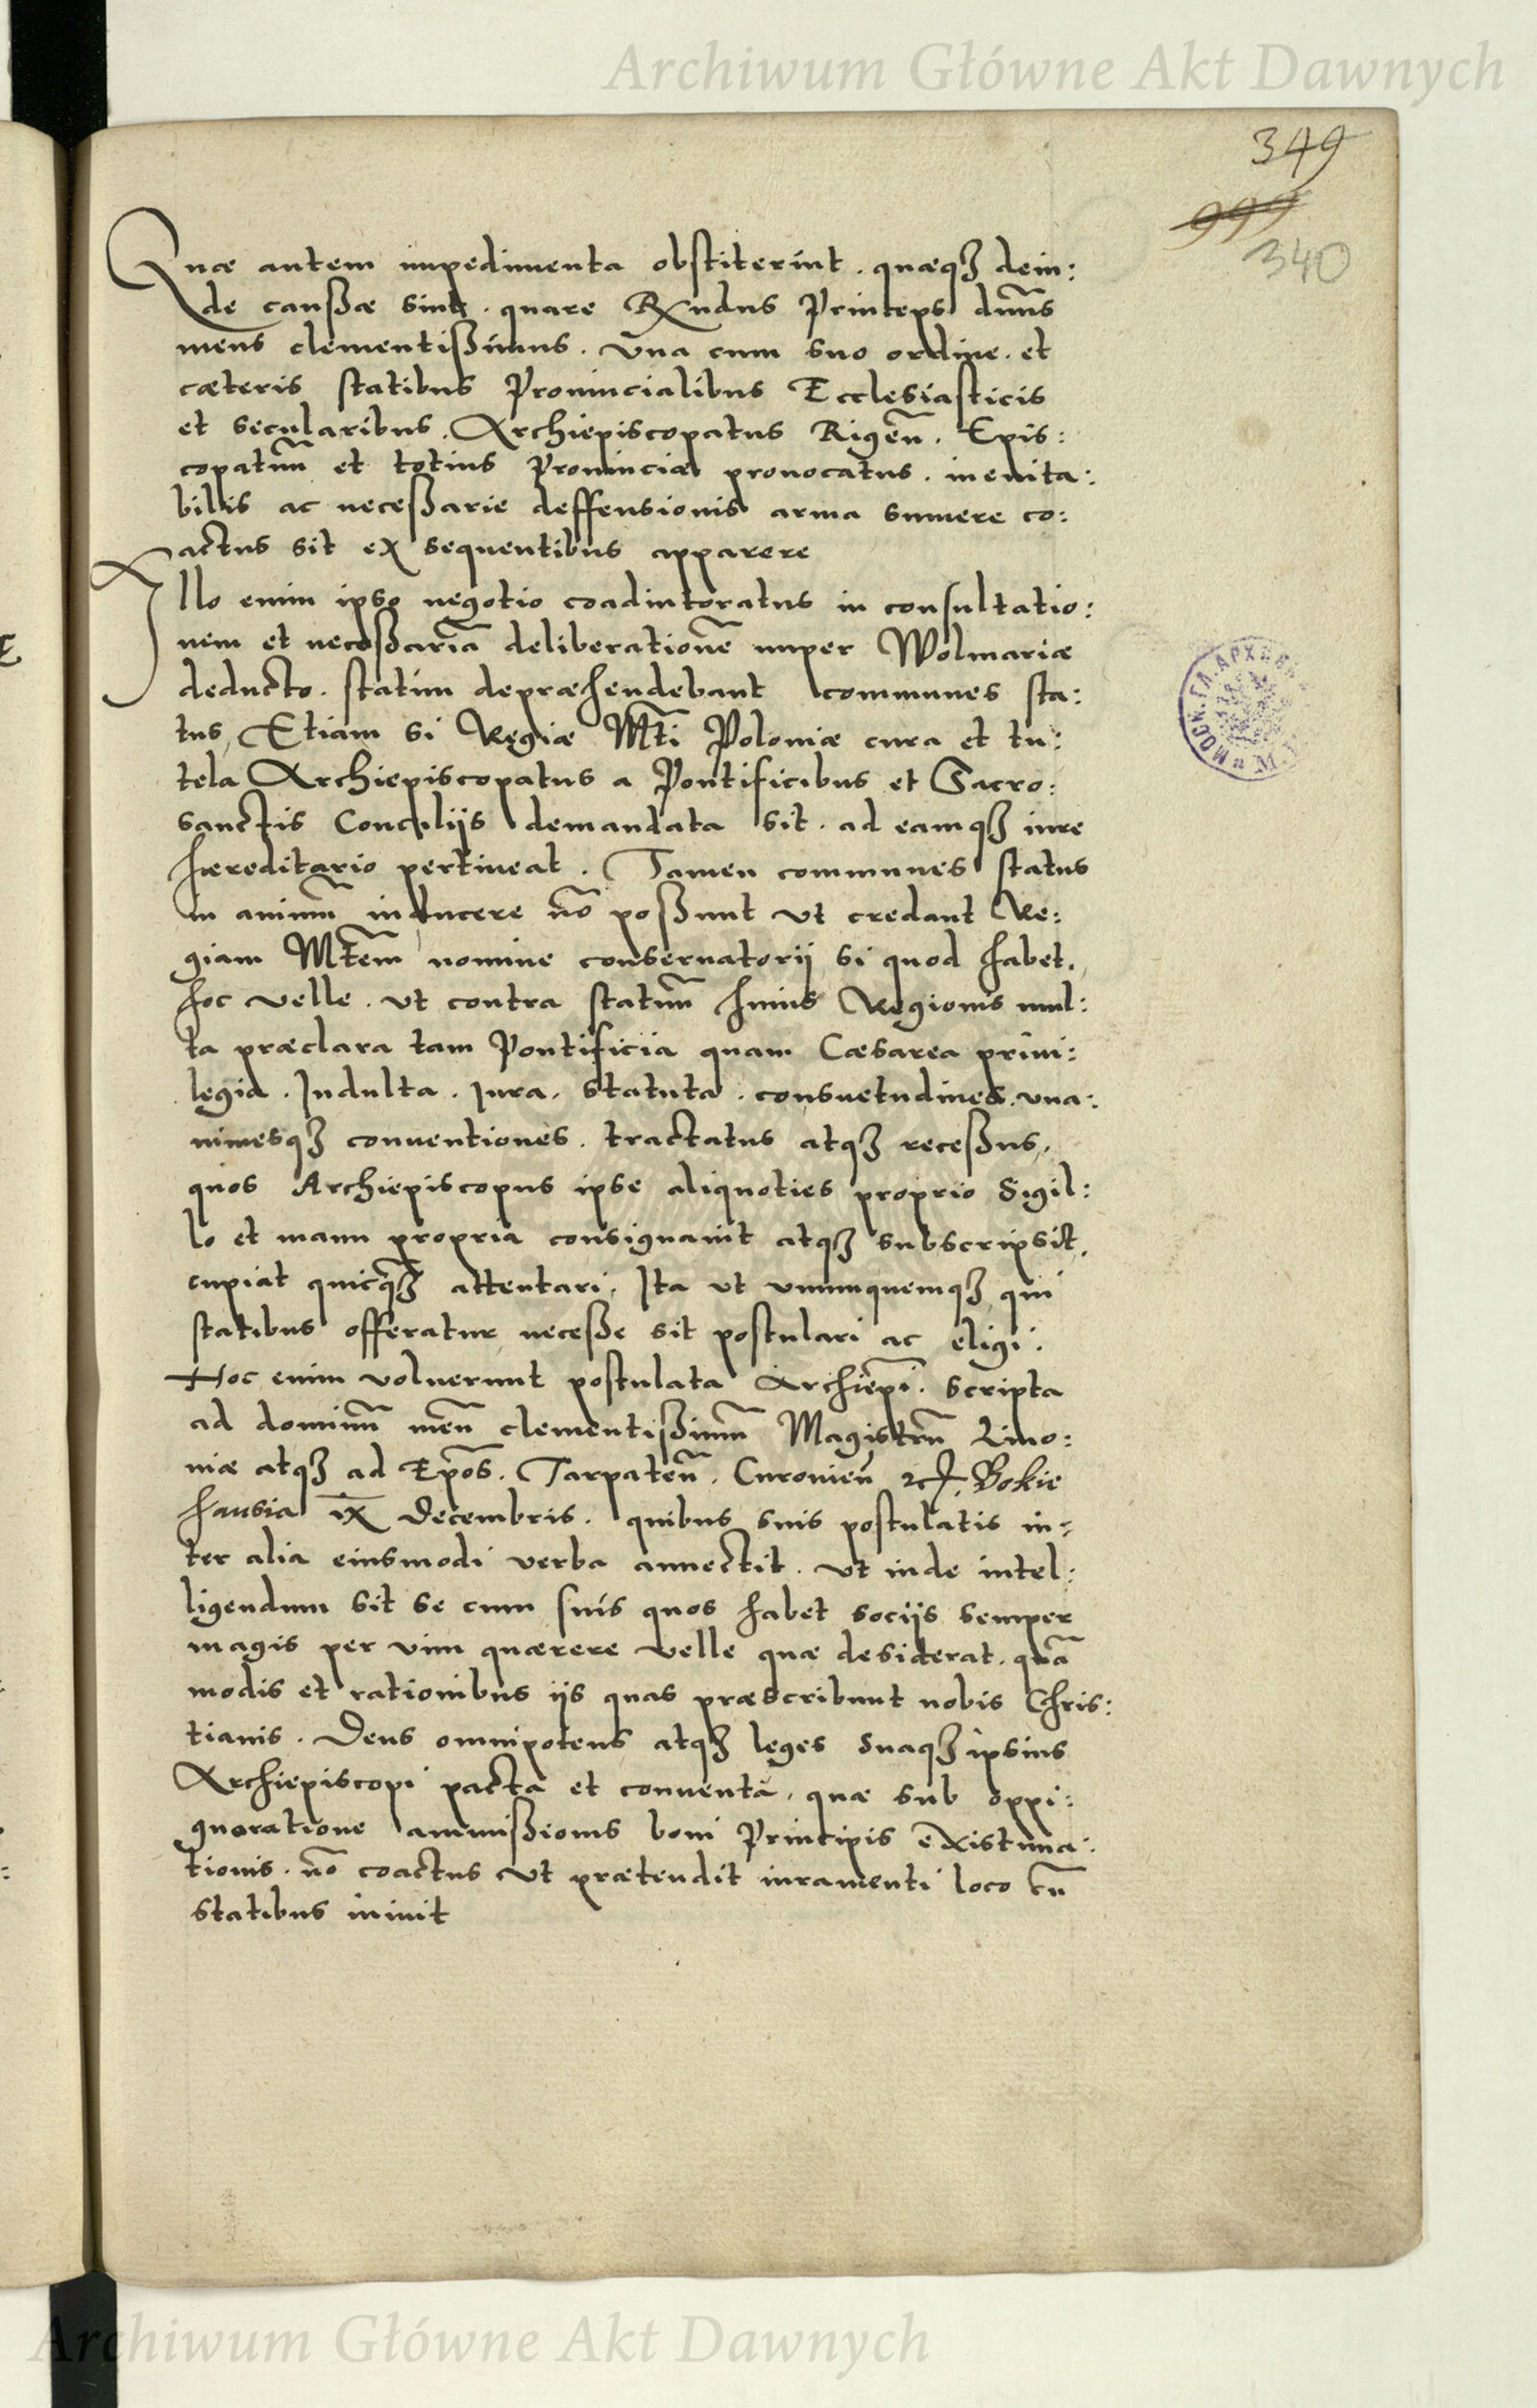 Archiwum Główne Akt Dawnych
349
999
340
Quæ autem impedimenta obstiterint. quæqȝ dein:
de caussæ sint. quare Rxndus Princeps dnus
meus clementissimus. Una cum suo ordine. et
cæteris statibus Prouincialibus Ecclesiasticis
et secularibus. Archiepiscopatus Rigen̄. Epis:
copatuū et totius Prouinciæ prouocatus. ineuita:
bilis ac necessarie deffensionis arma sumere co:
actus sit ex sequentibus apparere
Illo enim ipso negotio coadiutoratus in consultatio:
nem et necessariā deliberationē nuper Wolmariæ
deducto. statim depræhendebant communes sta:
tus, Etiam si Regiæ Mti Poloniæ cura et tu:
tela Archiepiscopatus a Pontificibus et Sacro:
sanctis Concilijs demandata sit. ad eamqȝ iure
hæreditario pertineat. Tamen communes status
in animū inducere nō possunt ut credant Re:
giam Mtem nomine conseruatorij si quod habet.
hoc velle. ut contra statuū huius Regionis mul:
ta præclara tam Pontificia quam Cæsarea priui:
legia. Indulta. Iura. Statuta. consuetudines. una:
nimesqȝ conuentiones. tractatus atqȝ recessus.
quos Archiepiscopus ipse aliquoties proprio Sigil:
lo et manu propria consignauit atqȝ subscripsit.
cupiat quicqȝ attentari. Ita ut unumquemqȝ qui
statibus offeratur necesse sit postulari ac eligi.
Hoc enim voluerunt postulata Archiepi. scripta
ad dominū meū clementissimū Magistrū Liuo:
niæ atqȝ ad Epos. Tarpaten̄. Curonien̄ etc. Bokie
hausia ix Decembris. quibus suis postulatis in=
ter alia eiusmodi verba annectit. ut inde intel:
ligendum sit se cum suis quos habet socijs semper
magis per vim quærere velle quæ desiderat. quā
modis et rationibus ijs quas præscribunt nobis Chris:
tianis. Deus omnipotens atqȝ leges suaqȝ ipsius
Archiepiscopi pacta et conuenta. quæ sub oppi:
gnoratione ammissionis boni Principis existima:
tionis. nō coactus ut prætendit iuramenti loco cū
statibus iniuit
Archiwum Główne Akt Dawnych